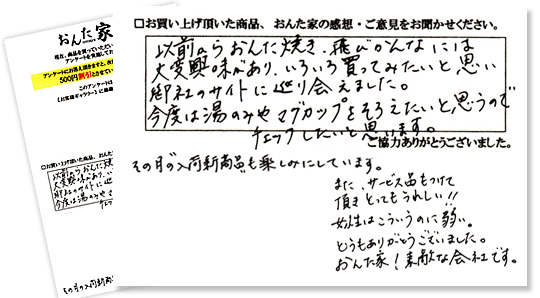 おんた家
500円割引
□お買い上げ頂いた商品、おんた家の感想・ご意見をお聞かせください。
以前からおんた焼き、飛びかんなには
大変興味があり、いろいろ買ってみたいと思い
御社のサイトに巡り会えました。
今度は湯のみやマグカップをそろえたいと思うので
チェックしたいと思います。
ご協力ありがとうございました。
その月の"入荷新商品"も楽しみにしています。
また、サービス品もつけて
頂きとってもうれしい!!
女性はこういうのに弱い。
どうもありがとうございました。
おんた家!素敵な会社です。